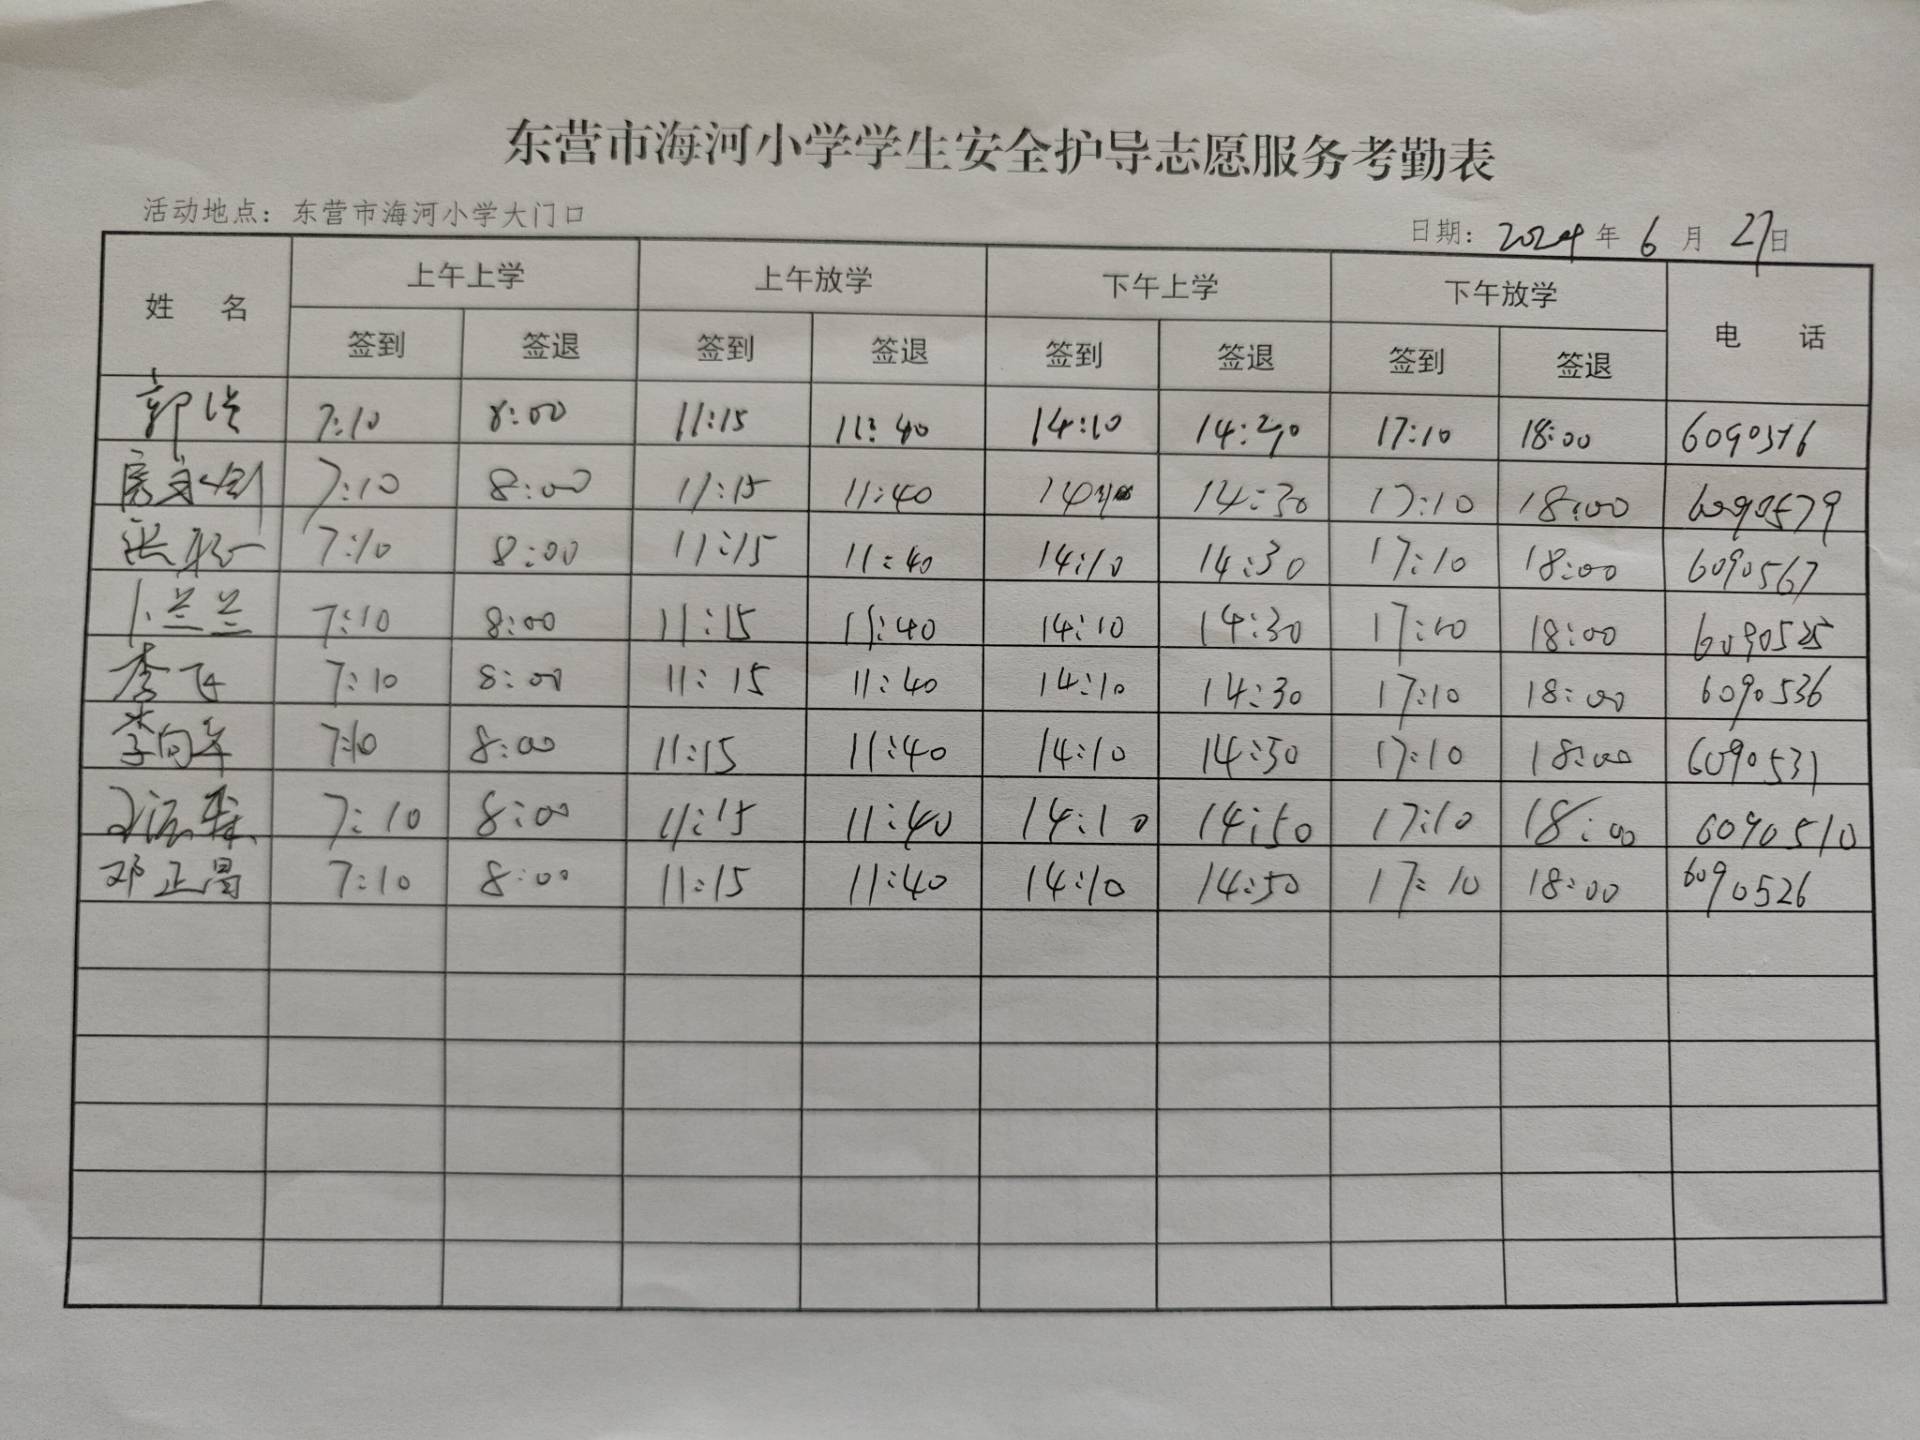 东营市海河小学学生安全护导志愿服务考勤表
活动地点：东营市海河小学大门口 日期：2024年6月27日
姓 名 上午上学 上午放学 下午上学 下午放学 电 话
签到 签退 签到 签退 签到 签退 签到 签退
郭 7:10 8:00 11:15 11:40 14:10 17:10 18:00
房 7:10 8:00 11:15 11:40 14:30 17:10 18:00 6090579
张 7:10 8:00 11:15 11:40 14:10 14:30 17:10 18:00 6090567
卜兰兰 7:10 8:00 11:15 11:40 14:10 14:30 17:10 18:00 6090525
李飞 7:10 8:00 11:15 11:40 14:10 14:30 17:10 18:00 6090536
李向军 7:10 8:00 11:15 11:40 14:10 14:50 17:10 18:00 6090531
7:10 8:00 11:15 11:40 14:10 14:50 17:10 18:00 6090510
邓正昌 7:10 8:00 11:15 11:40 14:10 14:50 17:10 18:00 6090526